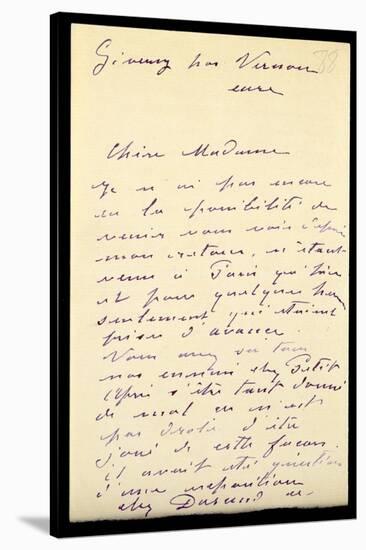 Giverny par Vernon
eure
38
Chère Madame
Je n'ai pas encore
eu la possibilité de
venir vous voir depuis
mon retour, n'étant
venu à Paris qu'hier
et pour quelques heures
seulement qui étaient
prises d'avance.
Vous avez su tous
nos ennuis chez Petit
après s'être tant donné
de mal ce n'est
pas drôle d'être
joué de cette façon.
il avait été question
d'une exposition
chez Durand